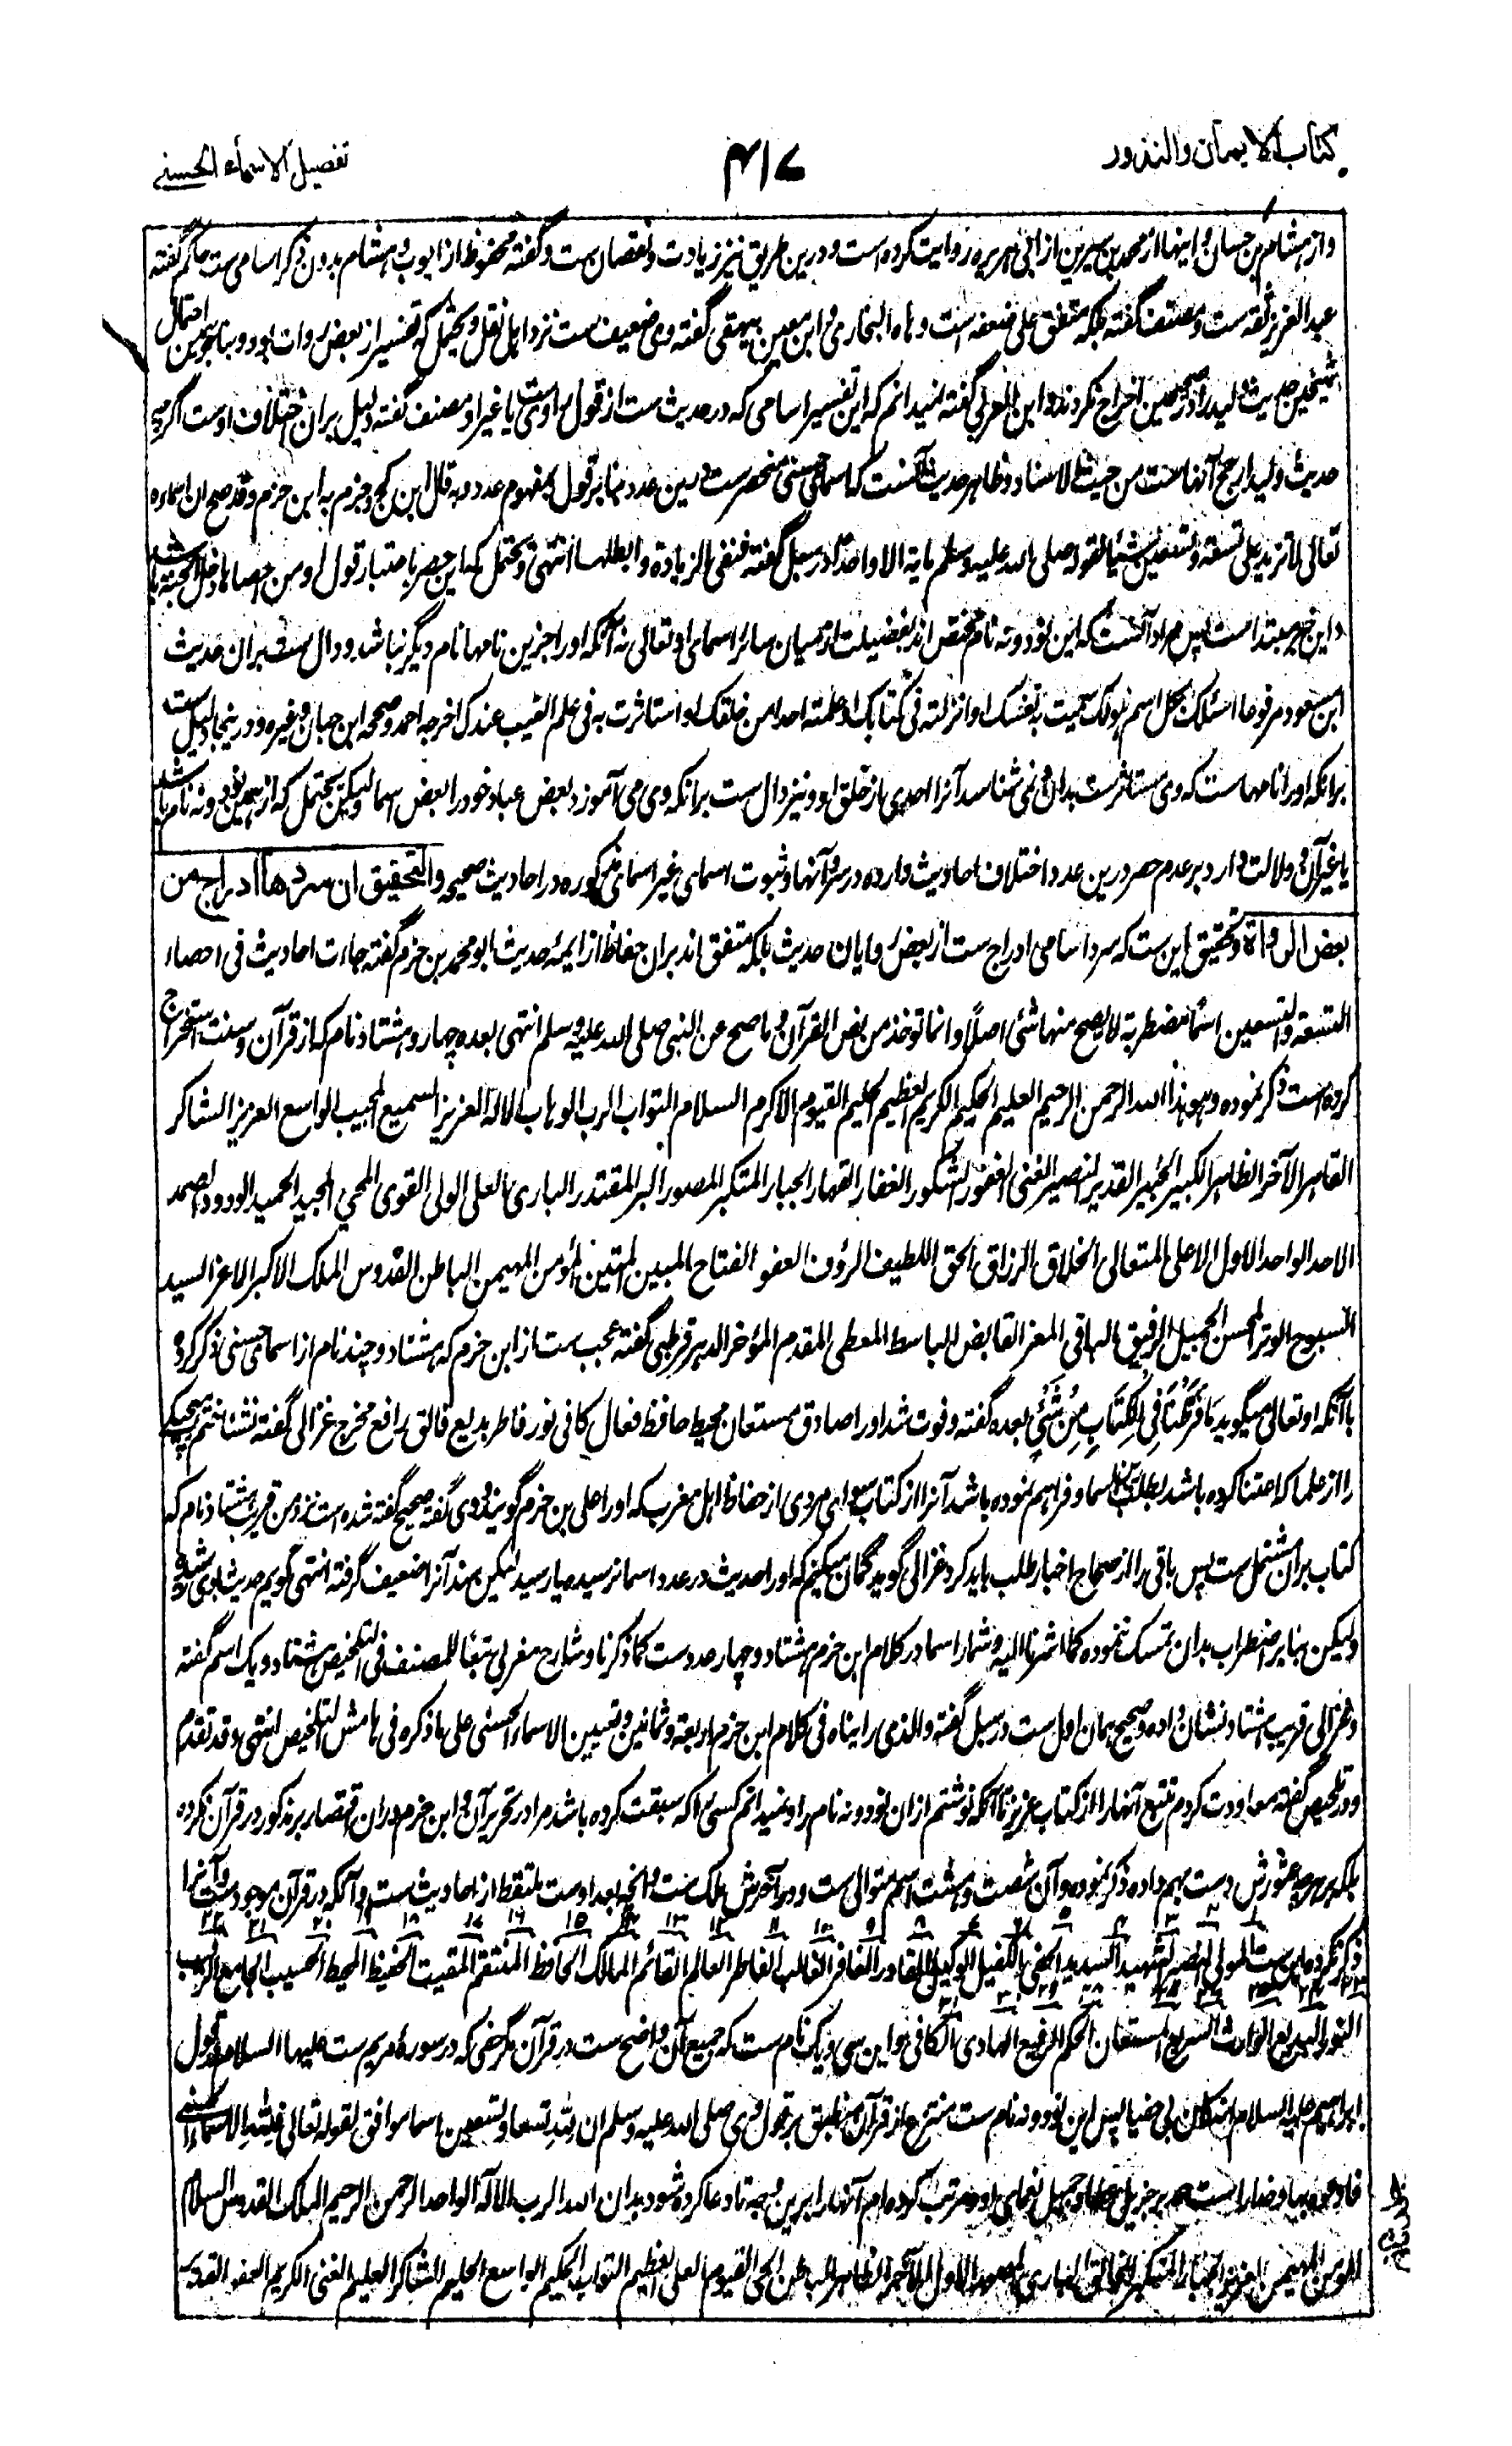 کتاب الایمان والنذور
۴۱۷
تفصیل الاسماء الحسنی
واز ہشام بن حسان واینها از محمد بن سیرین از ابی ہریرہ روایت کردہ است ودرین طریق نیز زیادت ونقصان ست وگفتہ محفوظ از ایوب وہشام بدون ذکر اسامی ست حاکم گفتہ
عبد العزیز ثقہ ست ومصنف گفتہ بلکہ متفق علی ضعفہ است وہاہ البخاری وابن معین بیہقی گفتہ وی ضعیف ست نزد اہل نقل ویحتمل کہ تفسیر از بعض روات بود وبنابر ہمین احتمال
شیخین حدیث ولید را در صحیحین اخراج نکردند وابن العربی گفتہ نمیدانم کہ این تفسیر اسامی کہ در حدیث ست از قول راویست یا غیر او مصنف گفتہ دلیل بران اختلاف اوست اگرچہ
حدیث ولید ارجح آنهاست من حیث الاسناد وظاہر حدیث آنست کہ اسمای حسنی منحصرست درین عدد بنابر قول بمفہوم عدد وبہ قال ابن کج وجزم بہ ابن حزم وقد صح ان اسماءہ
تعالی لا تزید علی تسعة وتسعین شیئا لقولہ صلی اللہ علیہ وسلم مایة الا واحدا در سبل گفتہ فنفی الزیادة وابطلها انتهی ویحتمل کہ این حصر باعتبار قول او من احصاها دخل الجنة باشد
واین خبر مبتداست پس مراد آنست کہ این نود ونہ نام مختص اند بفضیلت از میان سائر اسمای او تعالی نہ آنکہ اورا جزین نامہا نام دیگر نباشد ودال ست بران حدیث
ابن مسعود مرفوعا اسئلک بکل اسم ہو لک سمیت بہ نفسک او انزلتہ فی کتابک او علمتہ احدا من خلقک او استاثرت بہ فی علم الغیب عندک اخرجہ احمد وصححہ ابن حبان وغیرہ ودرینجا دلیل ست
برانکہ اورا نامہاست کہ وی مستاثرست بدان ونمی شناسد آنرا احدی از خلق او ونیز دال ست برانکہ وی می آموزد بعض عباد خود را بعض اسما ولیکن یحتمل کہ از ہمین نود ونہ نام باشد
یا غیر آن ودلالت دارد بر عدم حصر درین عدد اختلاف احادیث واردہ در سرد آنها وثبوت اسمای غیر اسمای مذکورہ در احادیث صحیحہ والتحقیق ان سردها ادراج من
بعض الرواة وتحقیق این ست کہ سرد اسامی ادراج ست از بعض راویان حدیث بلکہ متفق اند بران حفاظ از ایمہ حدیث ابو محمد بن حزم گفتہ جاءت احادیث فی احصاء
التسعة والتسعین اسما مضطربة لا یصح منها شئی اصلا وانما توخذ من نص القرآن وما صح عن النبی صلی اللہ علیہ وسلم انتهی بعدہ چہار وہشتاد نام کہ از قرآن وسنت استخراج
کردہ است ذکر نمودہ وہو ہذا اللہ الرحمن الرحیم العلیم الحکیم الکریم العظیم الحلیم القیوم الاکرم السلام التواب الرب الوہاب الالہ العزیز السمیع المجیب الواسع العزیز الشاکر
القاہر الآخر الظاہر الکبیر الخبیر القدیر البصیر الغنی الغفور الشکور الغفار القہار الجبار المتکبر المصور البر المقتدر الباری العلی الولی القوی المحیی المجید الحمید الودود الصمد
الاحد الواحد الاول الاعلی المتعالی الخلاق الرزاق الحق اللطیف الرؤف العفو الفتاح المبین المتین المؤمن المہیمن الباطن القدوس الملک الاکبر الاعز السید
السبوح الوتر المحسن الجمیل الرفیق الباقی المعز القابض الباسط المعطی المقدم المؤخر الدہر قرطبی گفتہ عجب ست از ابن حزم کہ ہشتاد وچند نام از اسمای حسنی ذکر کردہ
باآنکہ او تعالی میگوید مَا فَرَّطْنَا فِی الْکِتَابِ مِنْ شَئْیٍ بعدہ گفتہ وفوت شد اورا صادق مستعان محیط حافظ فعال کافی نور فاطر بدیع فالق رافع مخرج غزالی گفتہ نشناختم ہیچیکی
را از علما کہ اعتنا کردہ باشد بطلب این اسما وفراہم نمودہ باشد آنرا از کتاب سوای مردی از حفاظ اہل مغرب کہ اورا علی بن حزم گویند وی گفتہ صحیح گفتہ شدہ است نزد من قریب ہشتاد نام کہ
کتاب بران مشتمل ست پس باقی را از صحاح اخبار طلب باید کرد غزالی گوید گمان میکنم کہ اورا حدیث در عدد اسما نرسیدہ یا رسید لیکن سند آنرا ضعیف گرفتہ انتهی گویم حدیث بوی رسیدہ
ولیکن بنابر اضطراب بدان تمسک ننمودہ کما اشرنا الیہ وشمار اسما در کلام ابن حزم ہشتاد وچہار عددست کما ذکرنا وشارح مغربی تبعا للمصنف فی التلخیص ہشتاد ویک اسم گفتہ
وغزالی قریب ہشتاد نشان دادہ وصحیح ہمان اول ست در سبل گفتہ والذی رایناہ فی کلام ابن حزم اربعة وثمانین وتعیین الاسماء الحسنی علی ما ذکرہ فی ہامش التلخیص انتهی وقد تقدم
ودر تلخیص گفتہ معاودت کردم تتبع آنهارا از کتاب عزیز تا آنکہ نوشتم ازان نود ونہ نام را ونمیدانم کسی را کہ سبقت کردہ باشد مرا در تحریر آن وابن حزم دران اقتصار بر مذکور در قرآن نکردہ
بلکہ ہرچہ عثورش دست بہم دادہ ذکر نمودہ وآن شصت وہشت اسم متوالی ست ودر آخرش ملک ست وآنچہ بعد اوست ملتقط از احادیث ست وآنکہ در قرآن موجودست وآنرا
ذکر نکردہ این ست المولی النصیر الشہید الشدید الحفی الکفیل الوکیل القادر الغافر الغالب الفاطر العالم القائم المالک الحافظ المنتقم المقیت الحفیظ المحیط الحسیب الجامع الرقیب
النور البدیع الوارث السریع المستعان الحکم الرفیع الہادی الکافی واین سی ویک نام ست کہ جمیع آن واضح ست در قرآن مگر حفی کہ در سورہ مریم ست علیها السلام در قول
ابراہیم علیہ السلام انہ کان بی حفیا پس این نود ونہ نام ست منتزع از قرآن منطبق بر قول وی صلی اللہ علیہ وسلم ان للہ تسعا وتسعین اسما موافق لقولہ تعالی فللہ الاسماء الحسنی
فادعوہ بہا وخدا راست حمد بر جزیل عطا وجمیل نعمای او ومرتب کردہ ام آنهارا برین وجہ تا دعا کردہ شود بدان اللہ الرب الالہ الواحد الرحمن الرحیم الملک القدوس السلام
المؤمن المہیمن العزیز الجبار المتکبر الخالق الباری المصور الاول الآخر الظاہر الباطن الحی القیوم العلی العظیم التواب الحلیم الواسع الحکیم الشاکر العلیم الغنی الکریم العفو القدیر